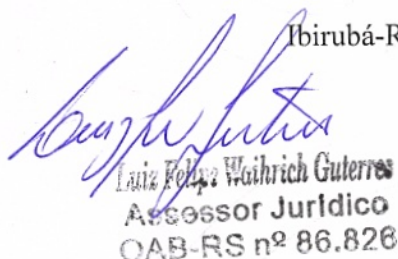 Ibirubá-R
Luiz Felipe Waihrich Guterres
Assessor Jurídico
OAB-RS nº 86.826